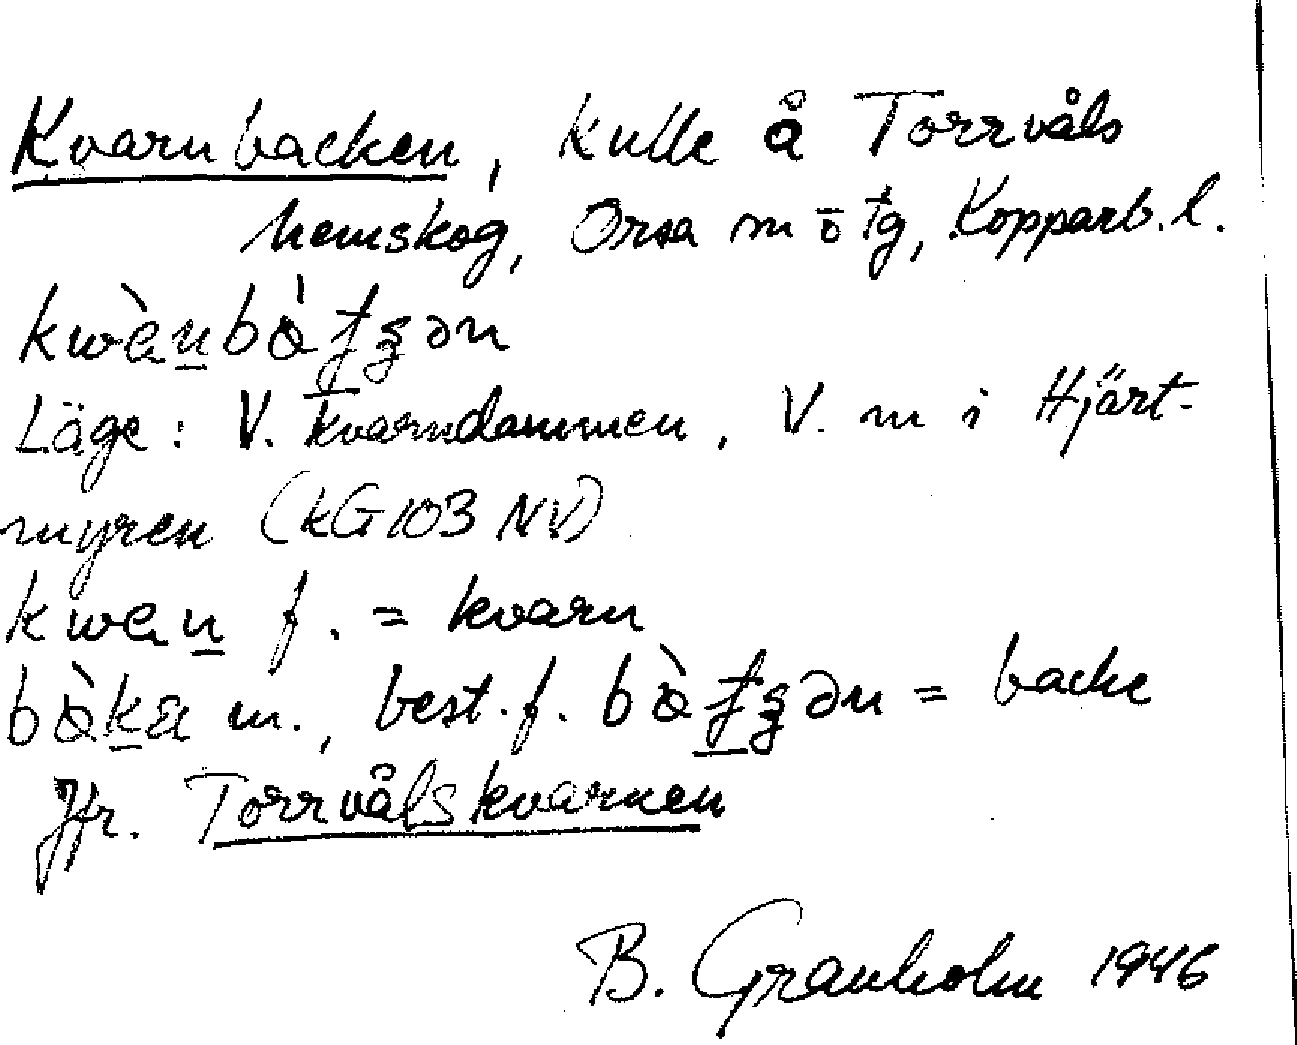 Kvarnbacken, kulle å Torrvåls
hemskog, Orsa sn o tg, Kopparb. l.
Läge: V. kvarndammen, V. sn i Hjärt-
myren (kG 103 NV)
f. = kvarn
m., best. f. = backe
Jfr. Torrvålskvarnen
B. Granholm 1946